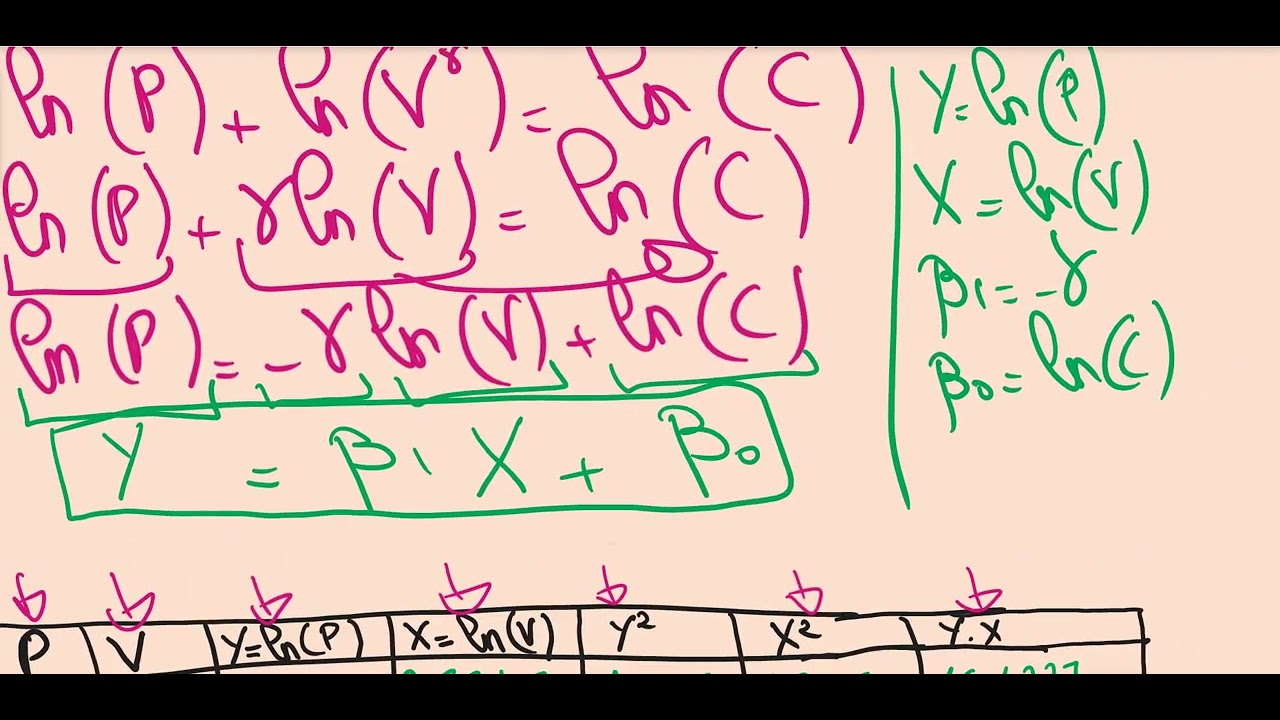 ln(P) + ln(V^γ) = ln(C)
ln(P) + γln(V) = ln(C)
ln(P) = -γln(V) + ln(C)
Y = β1 X + β0
Y=ln(P)
X=ln(V)
β1=-γ
β0=ln(C)
P V Y=ln(P) X=ln(V) Y² X² Y.X